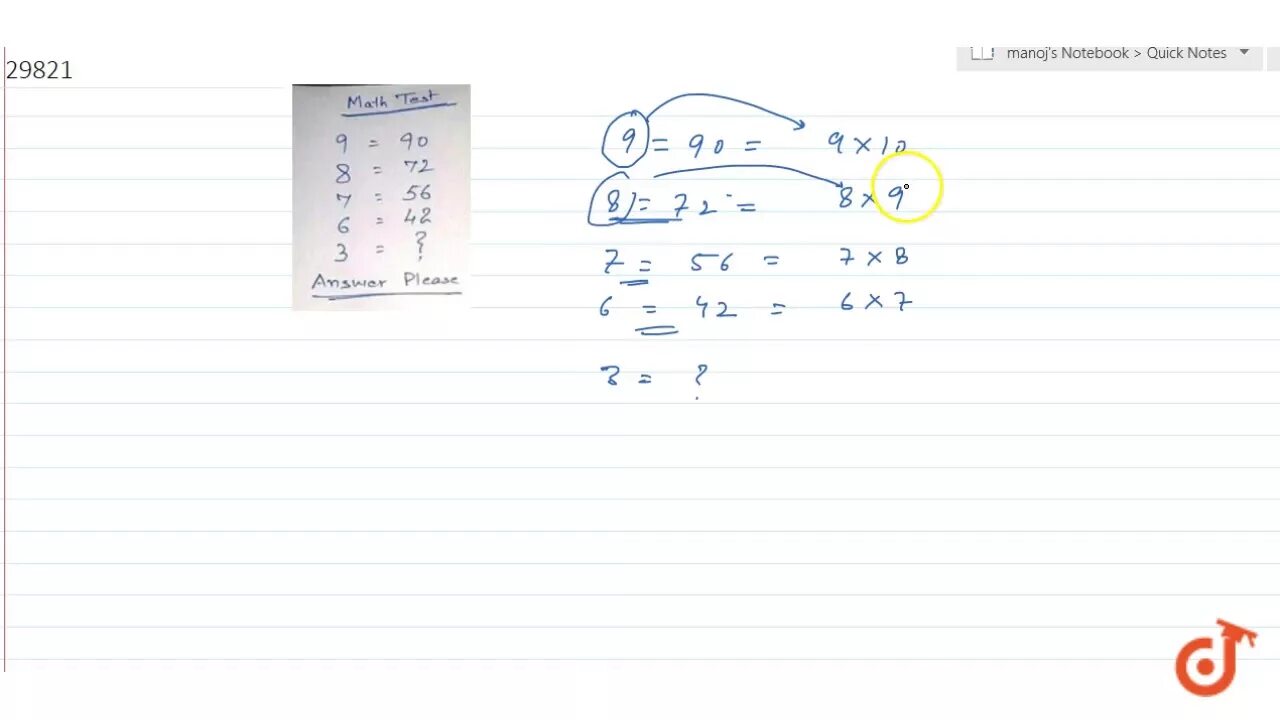 manoj's Notebook > Quick Notes
29821
Math Test
9 = 90
8 = 72
7 = 56
6 = 42
3 = ?
Answer Please
9 = 90 = 9 × 10
8 = 72 = 8 × 9
7 = 56 = 7 × 8
6 = 42 = 6 × 7
3 = ?